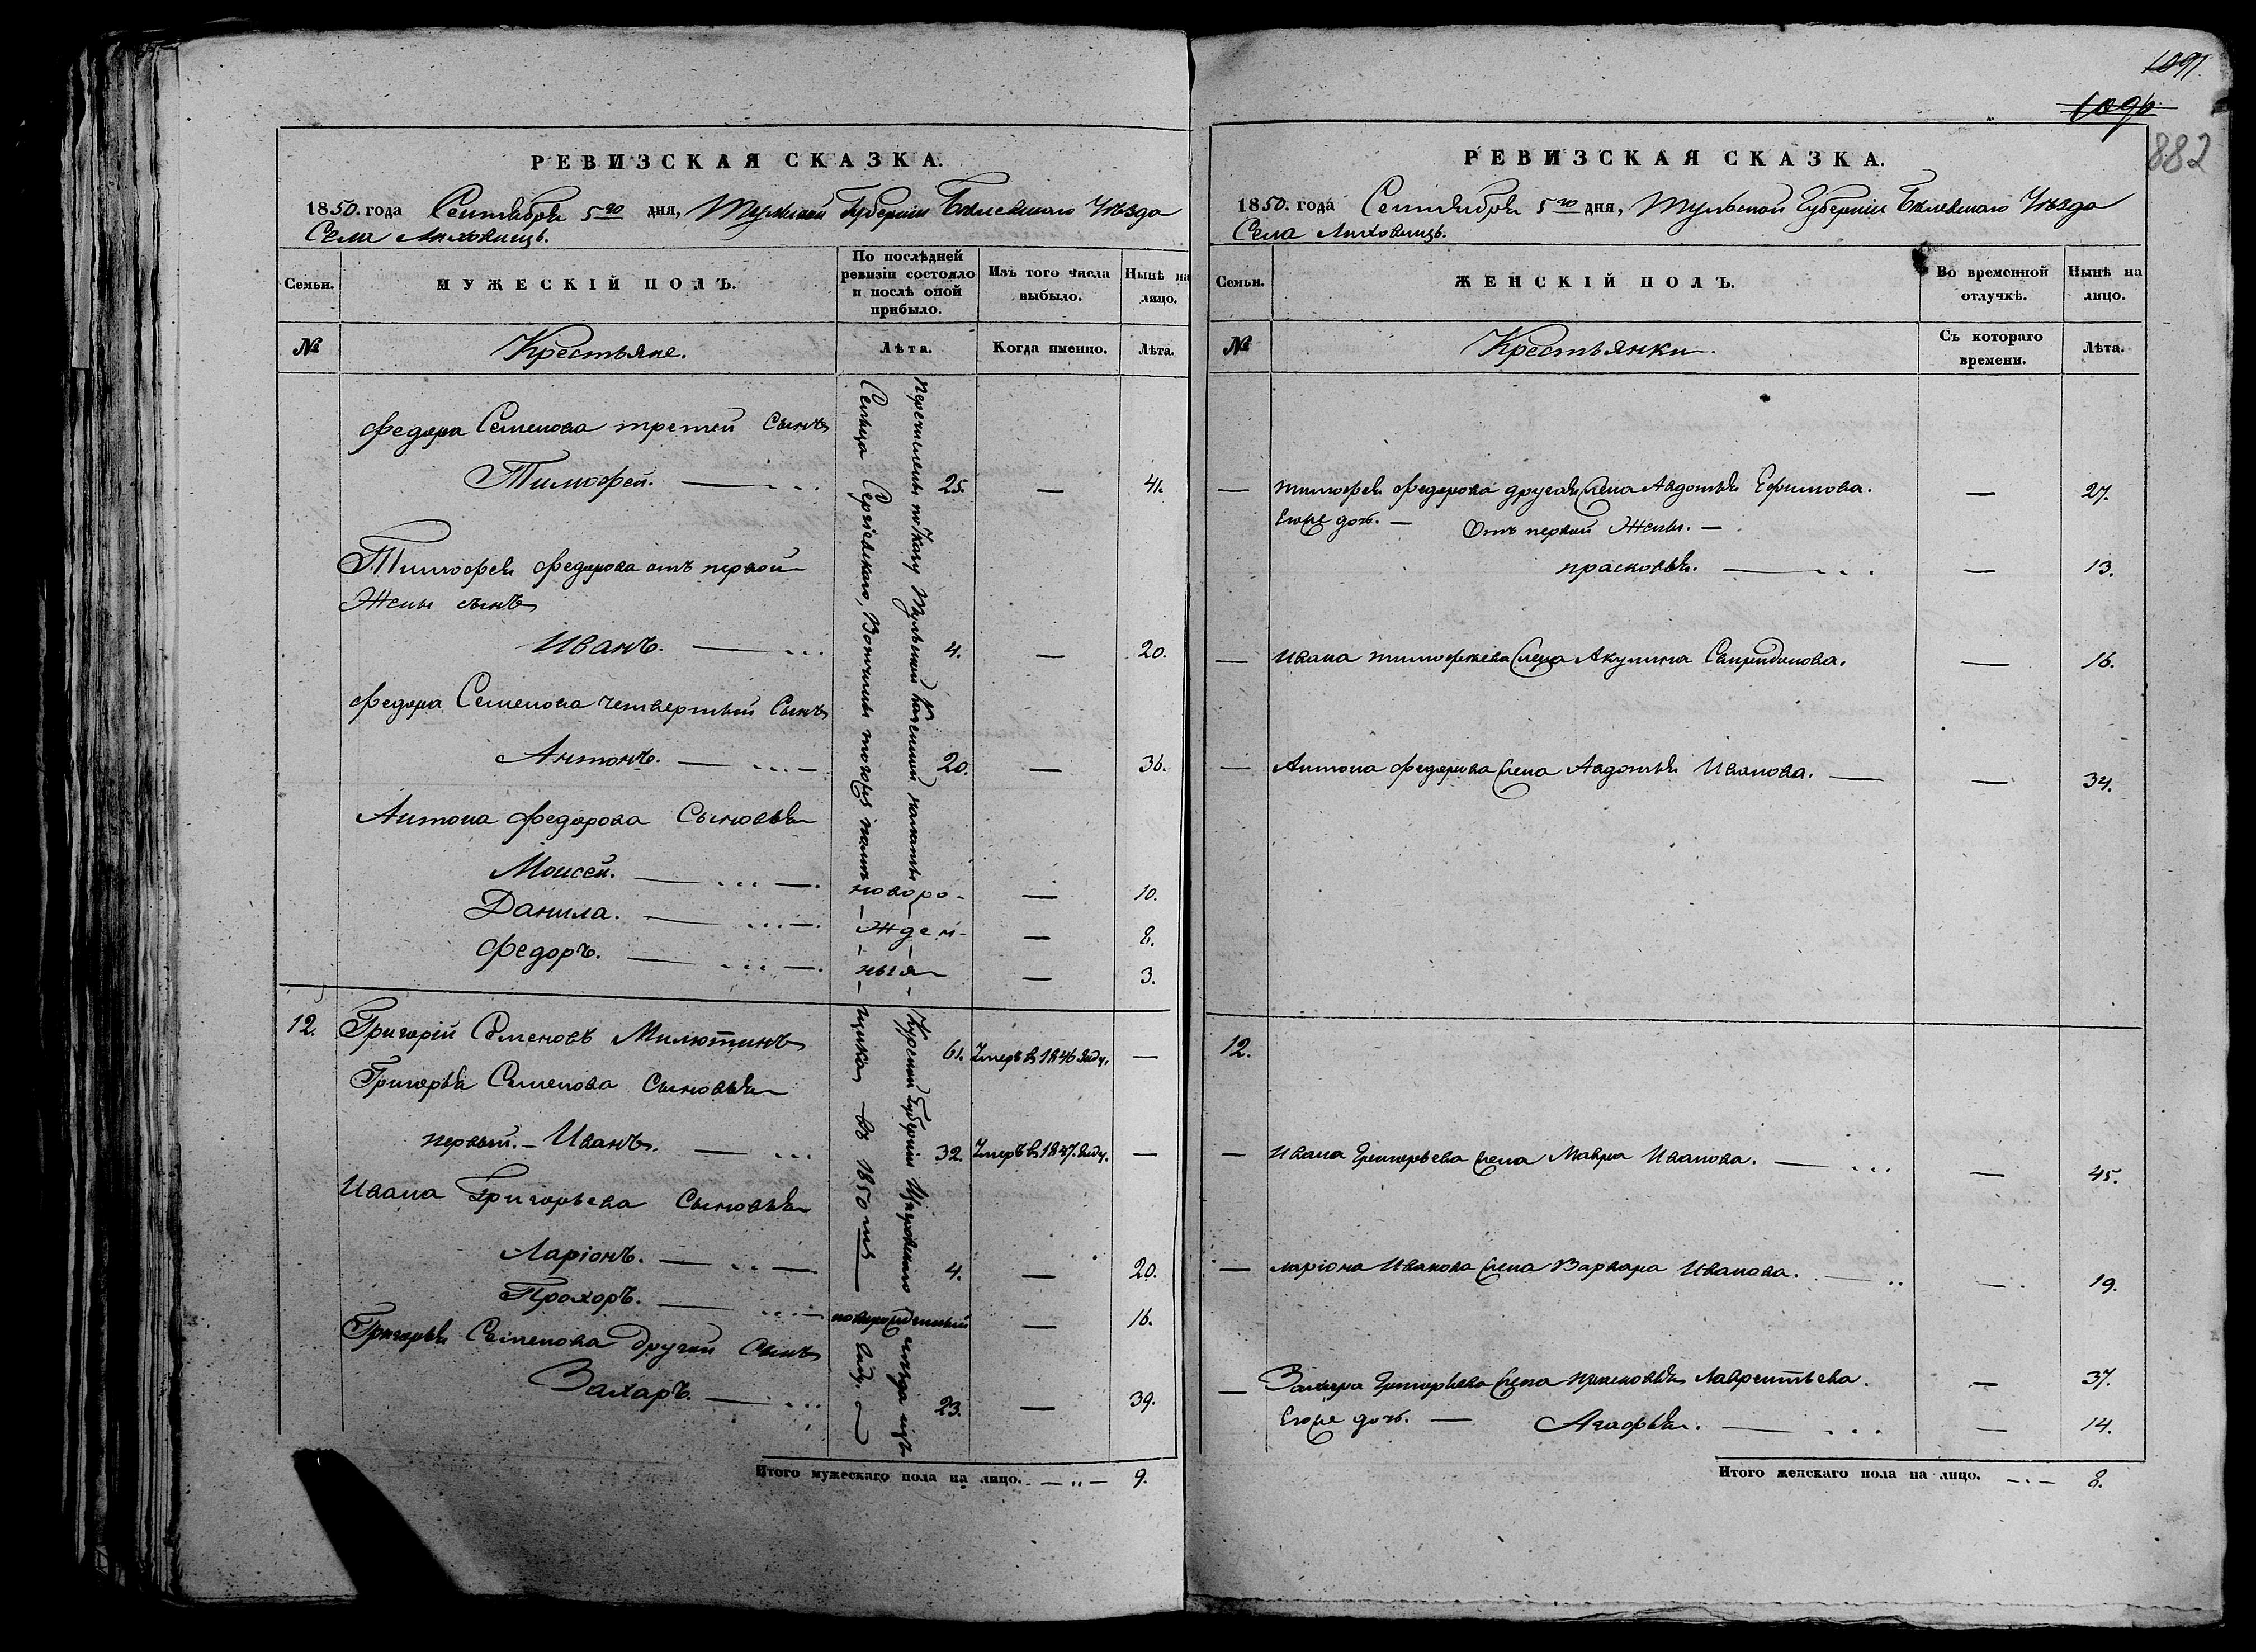 РЕВИЗСКАЯ СКАЗКА.
1850. года Сентября 5го дня, Тульской Губернiи Белевскаго Уѣзда
Села Лиховищъ.
Семьи.
МУЖЕСКІЙ ПОЛЪ.
По послѣдней ревизіи состояло и послѣ оной прибыло.
Изъ того числа выбыло.
Нынѣ на лицо.
№
Крестьяне.
Лѣта.
Когда именно.
Лѣта.
Федора Семенова третей Сынъ
Тимофей. 25. — 41.
Тимофея Федорова отъ первой
Жены сынъ
Иванъ. 4. — 20.
Федора Семенова четвертый Сынъ
Антонъ. 20. — 36.
Антона Федорова Сыновья
Моисей. — 10.
Данила. — 8.
Федоръ. — 3.
новорожденныя
12. Григорій Семеновъ Милютинъ 61. Умеръ въ 1846 году. —
Григорья Семенова Сыновья
первый. — Иванъ. 32. Умеръ въ 1847. году. —
Ивана Григорьева Сыновья
Ларіонъ. 4. — 20.
Прохоръ. новорожденный — 16.
Григорья Семенова другой сынъ
Захаръ. 23. — 39.
Перечислены по Указу Тульской Казенной палаты
Сельца Сергiевскаго, Вотчины тогожъ
Курской Губернiи Щигровскаго уѣзда
въ 1850 мъ году.
Итого мужескаго пола на лицо. 9.
1091.
1090.
882
РЕВИЗСКАЯ СКАЗКА.
1850. года Сентября 5го дня, Тульской Губернiи Белевскаго Уѣзда
Села Лиховищъ.
Семьи.
ЖЕНСКІЙ ПОЛЪ.
Во временной отлучкѣ.
Нынѣ на лицо.
№
Крестьянки.
Съ котораго времени.
Лѣта.
— Тимофея Федорова другая жена Авдотья Ефимова. — 27.
Егоже дочь. — Отъ первой Жены. —
прасковья. — 13.
— Ивана тимофеева жена Акулина Свиридонова. — 16.
— Антона Федорова жена Авдотья Иванова. — 34.
12.
— Ивана Григорьева жена Мавра Иванова. — 45.
— Ларіона Иванова жена Варвара Иванова. — 19.
— Захара Григорьева жена прасковья Лаврентьева. — 37.
Егоже дочь. — Агафья. — 14.
Итого женскаго пола на лицо. 8.